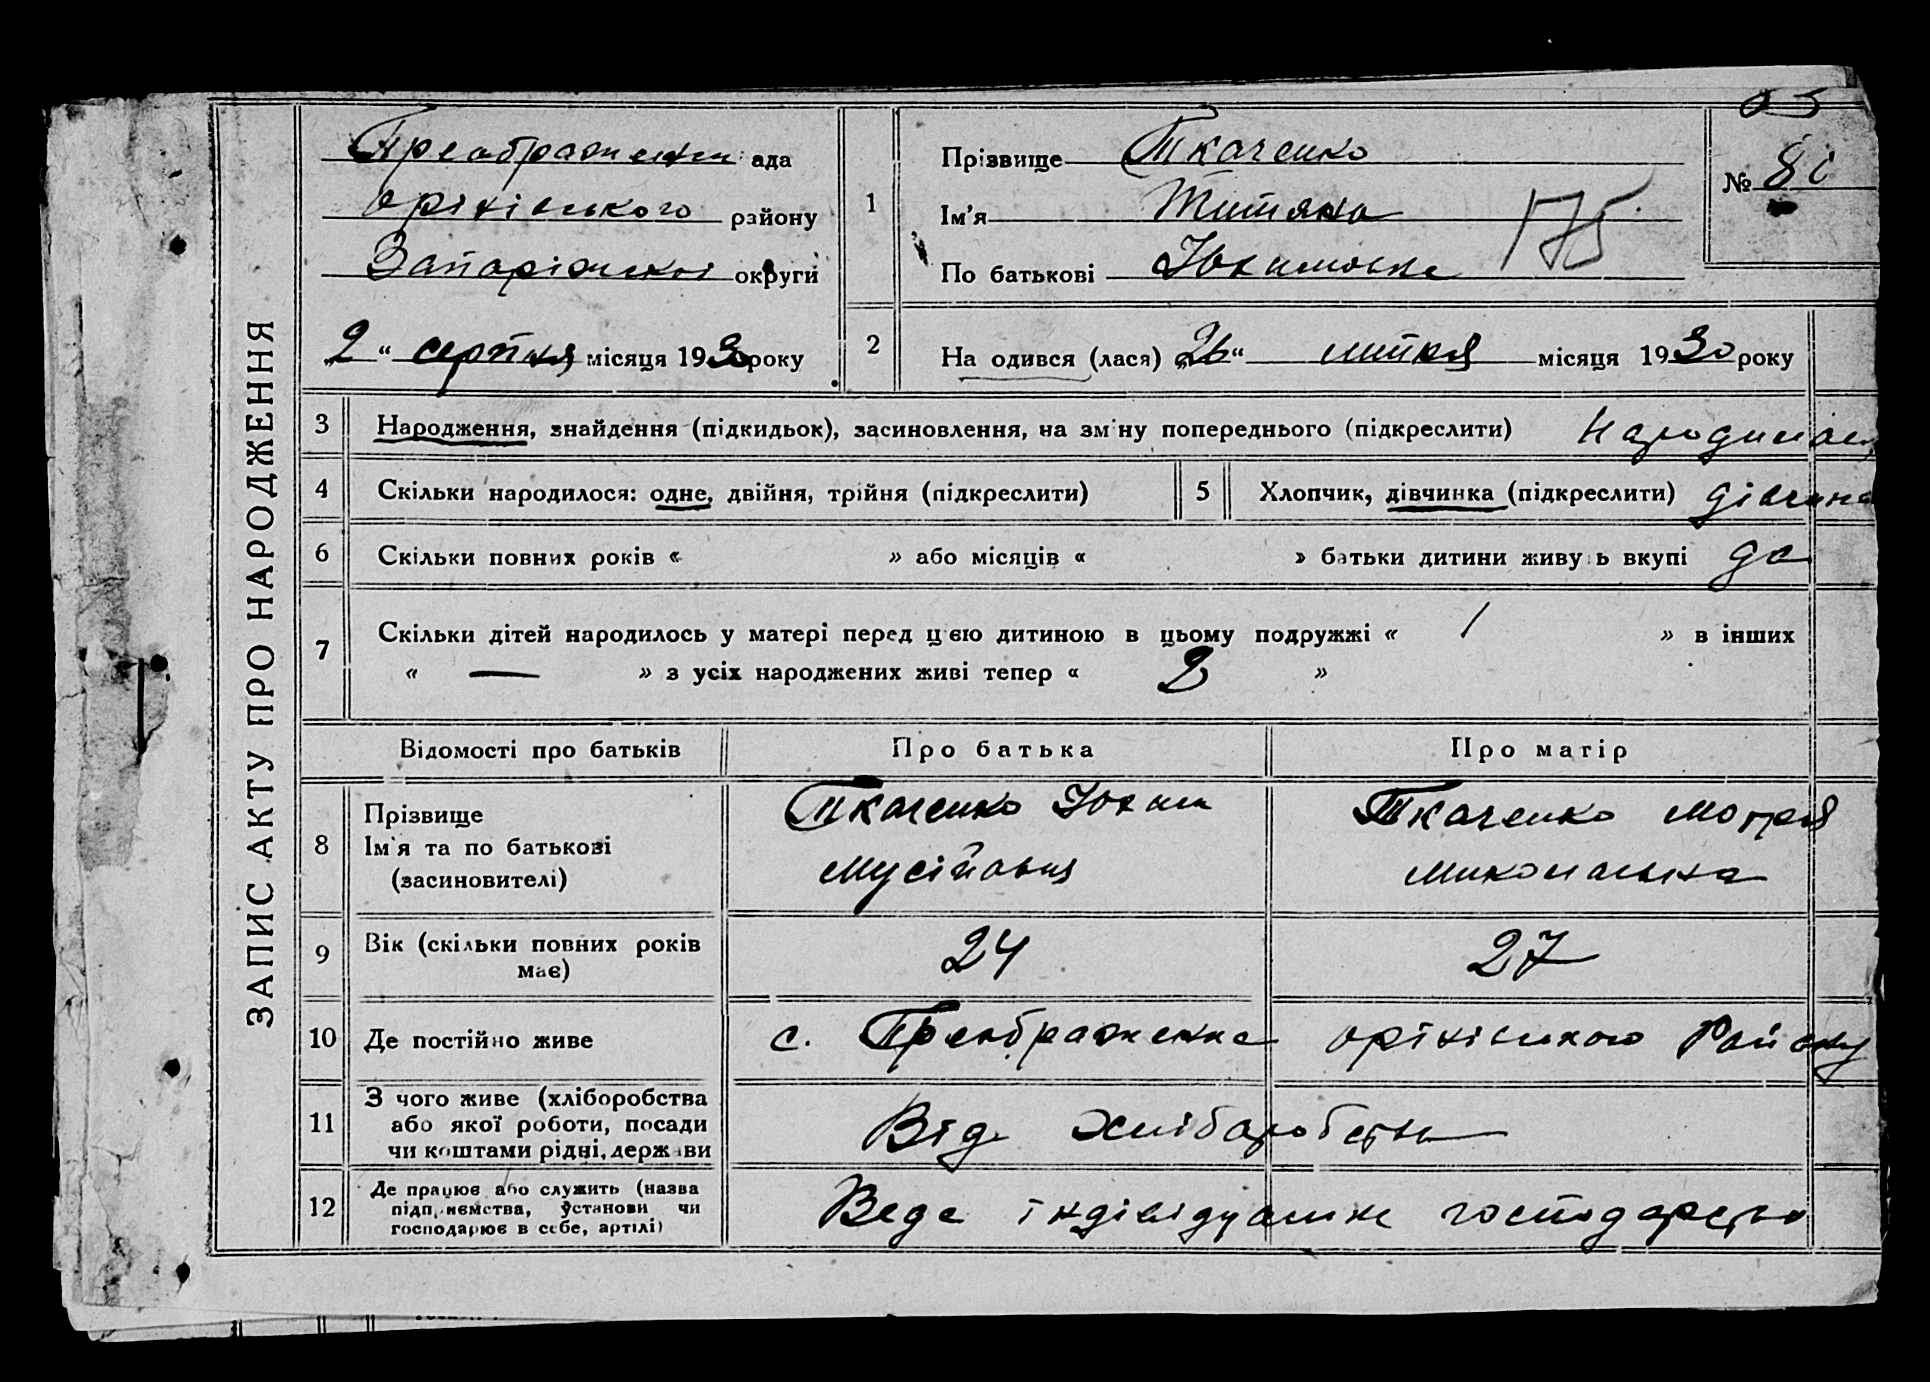 ЗАПИС АКТУ ПРО НАРОДЖЕННЯ
Преображенська ада
Оріхівського району
Запоріжської округи
„2“ серпня місяця 1930 року
1
Прізвище Ткаченко
Ім’я Титяна
По батькові Юхимовна
175
№ 80
2
На одився (лася) „26“ липня місяця 1930 року
3 Народження, знайдення (підкидьок), засиновлення, на зміну попереднього (підкреслити) Народилась
4 Скільки народилося: одне, двійня, трійня (підкреслити) 5 Хлопчик, дівчинка (підкреслити) дівчина
6 Скільки повних років « » або місяців « » батьки дитини живу ь вкупі да
7 Скільки дітей народилось у матері перед цією дитиною в цьому подружжі « 1 » в інших
« — » з усіх народжених живі тепер « 2 »
Відомості про батьків Про батька Про матір
8 Прізвище
Ім'я та по батькові
(засиновителі)
Ткаченко Юхим
Мусійович
Ткаченко Мотря
Миколаївна
9 Вік (скільки повних років
має)
24 27
10 Де постійно живе с. Преображенка Оріхівського Району
11 З чого живе (хліборобства
або якої роботи, посади
чи коштами рідні, держави
Від хліборобства
12 Де працює або служить (назва
підприємства, установи чи
господарює в себе, артілі)
Веде індівідуальне господарство